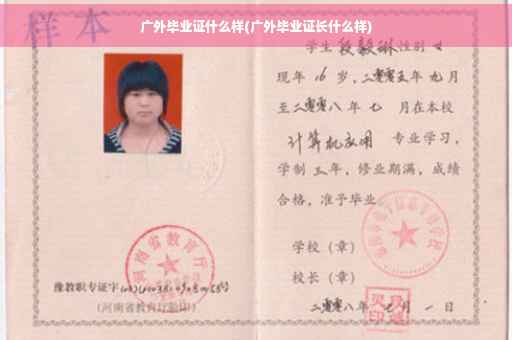 样本
广外毕业证什么样(广外毕业证长什么样)
学生段毅琳性别女
现年16岁，二零零五年九月
至二零零八年七月在本校
计算机应用 专业学习，
学制三年，修业期满，成绩
合格，准予毕业。
学校（章）
校长（章）
二零零八年七月一日
河南省教育厅
豫教职专证字
(河南省教育厅验印)